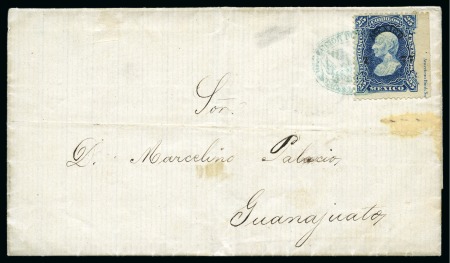 CORREOS
MEXICO
Sor.
D. Marcelino Palacio,
Guanajuato,